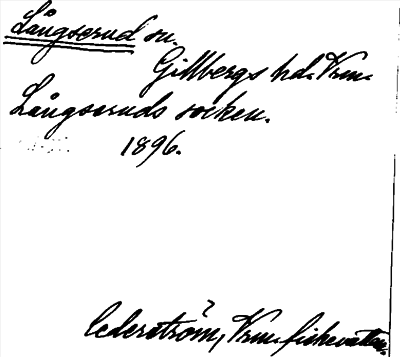 Långserud sn.
Gillbergs hd. Vrm.
Långseruds socken.
1896.
Cederström, Vrm. fiskevatten.